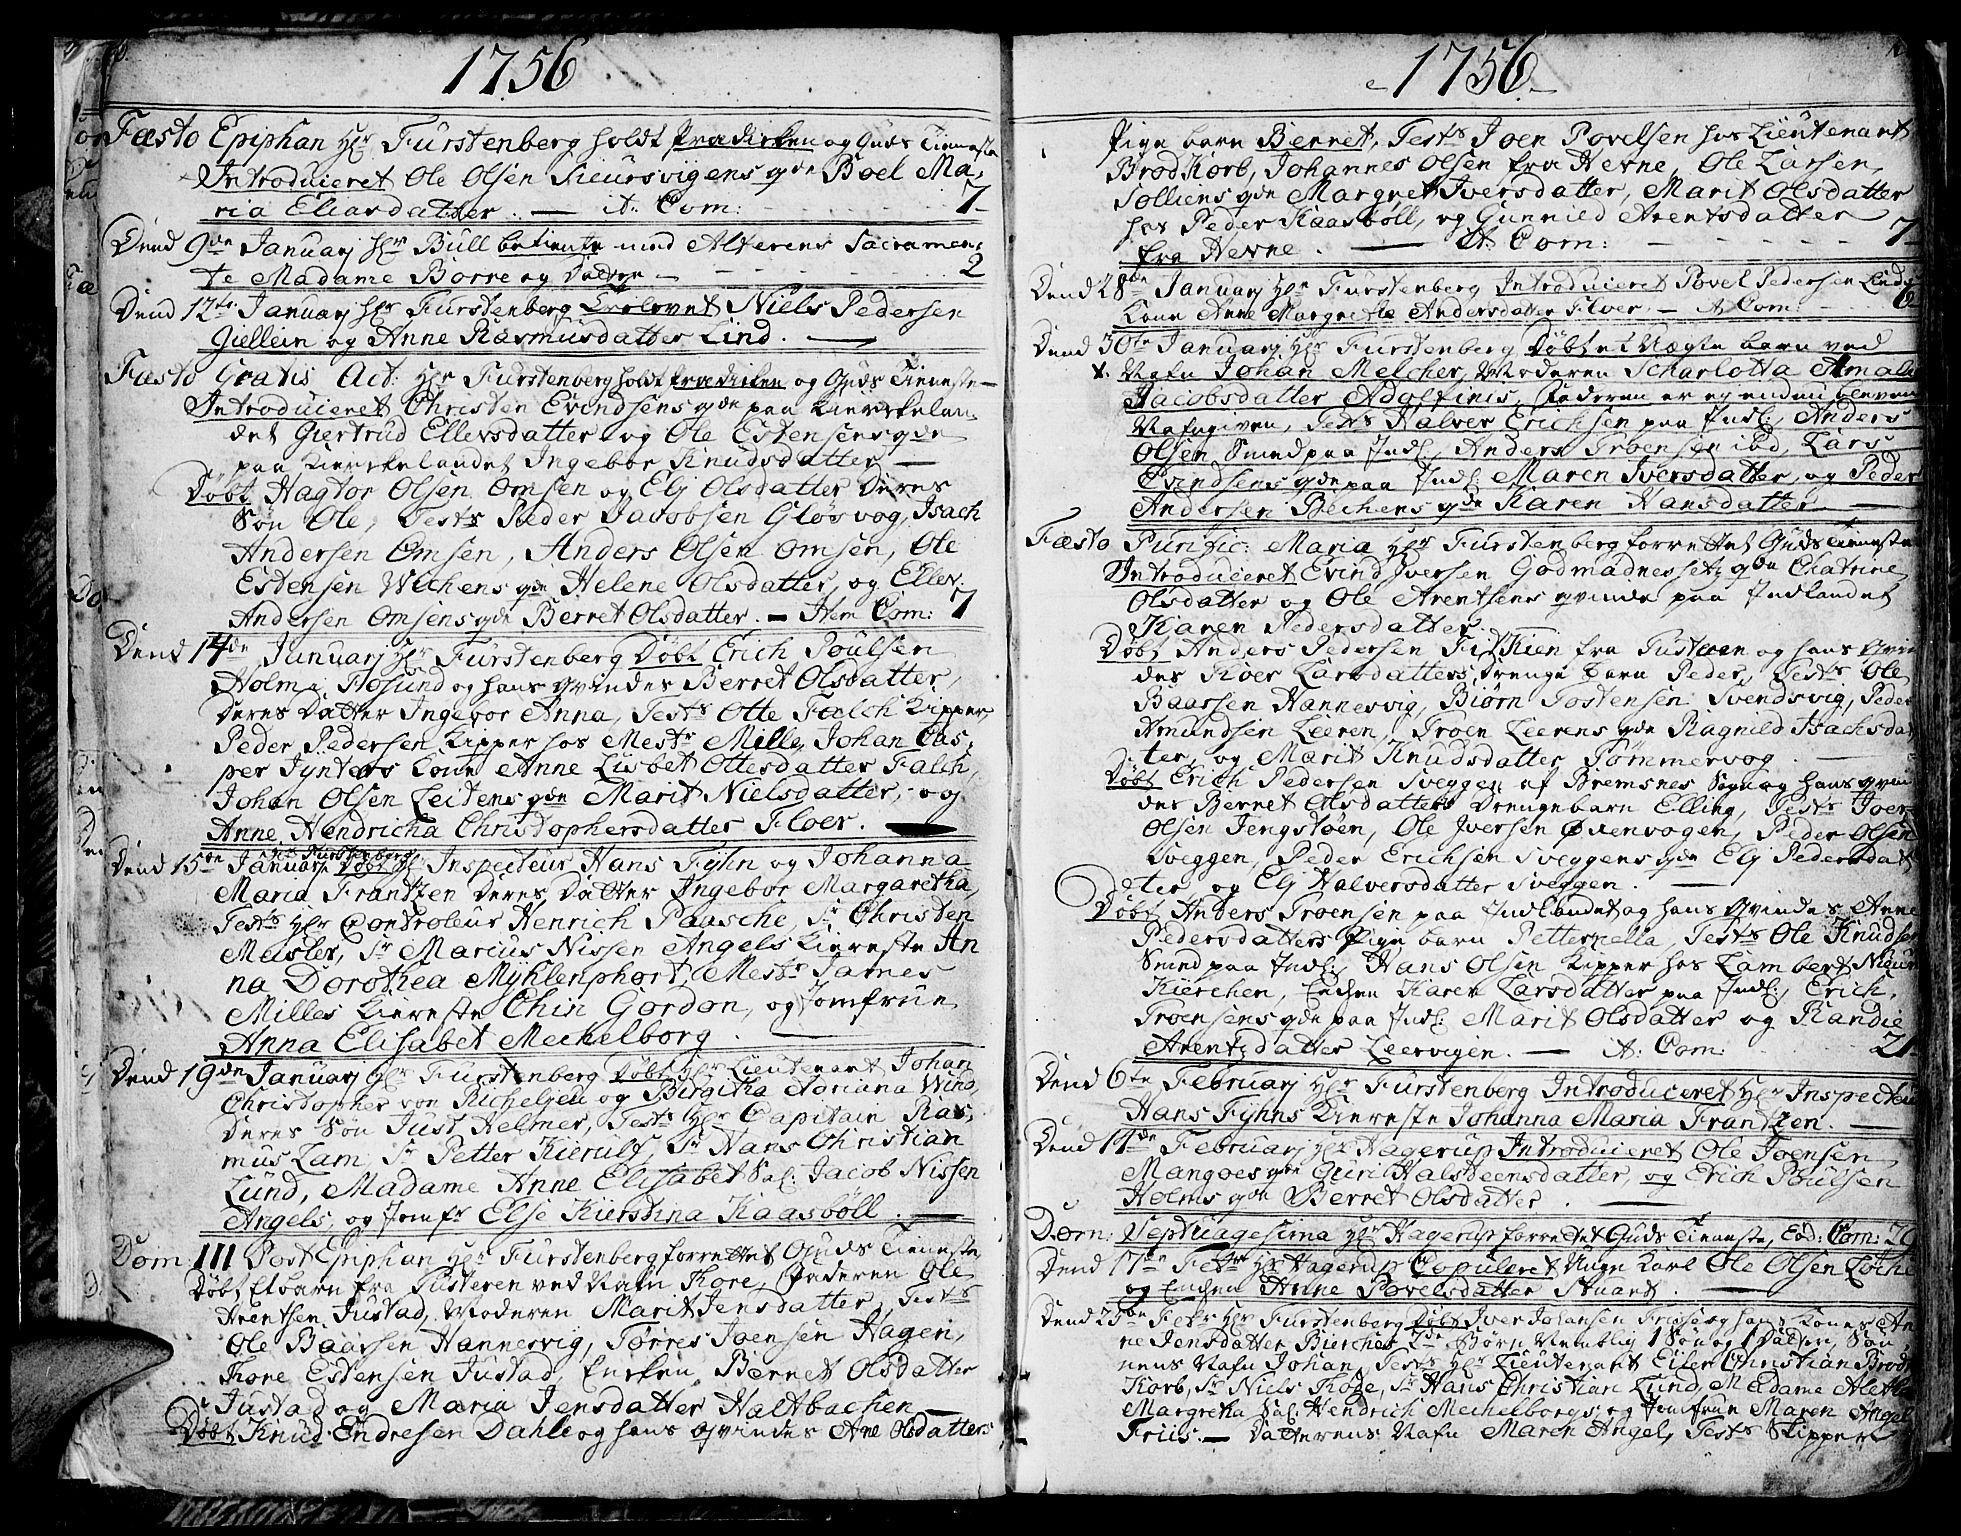 1756
Fæsto Epiphan Hr Furstenberg holdt prædicken og Guds Tieneste
Introduceret Ole Olsen Sieursvigens qde Boel Ma-
ria Eliasdatter. — it. Com: 7
Dend 9de Januarj Hr Bull betiente med Alterens Sacramen-
te Madame Borre og Datter — 2
Dend 12te Januarj Hr Furstenberg Trolovet Niels Pedersen
Giellein og Anne Rasmusdatter Lind. —
Fæsto Gratis Act: Hr Furstenberg holdt prædicken og Guds Tieneste
Introduceret Christen Evindsens qde paa Kirkelan-
det Giertrud Ellevsdatter og Ole Estensens qde
paa Kirkelandet Ingebor Knudsdatter —
Døbt Hagtor Olsen Omsen og Elj Olsdatter Deres
Søn Ole, Tests Peder Jacobsen Gløsvog, Isach
Andersen Omsen, Anders Olsen Omsen, Ole
Estensen Wechens qde Helene Olsdatter, og Ellev
Andersen Omsens qde Berret Olsdatter. — Item Com: 7
Dend 14de Januarj Hr Furstenberg Døbt Erich Poulsen
Holm i Fosund og hans qvindes Berret Olsdatter,
Deres Datter Ingebor Anna, Tests Otte Falch Kipper,
Peder Pedersen Kipper hos Mestr Mille, Johan Cas-
per Jynters Kone Anne Lisbet Ottesdatter Falch,
Johan Olsen Leitens qde Marit Nielsdatter, og
Anne Hendricha Christophersdatter Floer. —
Dend 15de Januarj Hr Furstenberg Døbt Hr Inspecteur Hans Fyhn og Johanna
Maria Frantzen Deres Datter Ingebor Margaretha,
Tests Hr Controleur Henrich Paasche, Sr Christen
Mesler, Sr Marcus Nissen Angels Kiereste An
na Dorothea Myhlenphort, Mestr James
Milles Kiereste Chir Gordon, og Jomfrue
Anna Elisabet Mechelborg. —
Dend 19de Januarj Hr Furstenberg Døbt Hr Lieutenant Johan
Christopher von Richelieu og Birgitha Noriana Wind,
Deres Søn Just Helmer, Tests Hr Capitain Ras-
mus Lam, Sr Petter Kierulf, Sr Hans Christian
Lund, Madame Anne Elisabet Sal: Jacob Nissen
Angels, og Jomfr Else Kierstina Kaasbøll. —
Dom: III Post Epiphan Hr Furstenberg forrettet Guds Tieneste
Døbt Et barn fra Tusteren ved Nafn Kore, Faderen Ole
Arentsen Justad, Moderen Marit Jensdatter, Tests
Ole Baarsen Hannesvig, Torres Joensen Hagen,
Kore Estensen Justad, Enken Berret Olsdatter
Justad og Maria Jensdatter Haltbachen —
Døbt Knud Endresen Dahle og hans qvindes Ane Olsdatters
1756
Pige barn Berret, Tests Joen Povelsen hos Lieutenant
Brodkorb, Johannes Olsen fra Hevne, Ole Larsen
Solliens qde Margret Iversdatter, Marit Olsdatter
hos Peder Kaasbøll, og Gunnild Arentsdatter
fra Hevne. — it. Com: 7
Dend 28de Januarj Hr Furstenberg Introduceret Povel Pedersen Linds
Kone Anne Margrethe Andersdatter Floer, — it Com: 6
Dend 30te Januarj Hr Furstenberg Døbt et Uægte barn ved
Nafn Johan Melcher, Moderen Scharlotta Amalia
Jacobsdatter Adolfinis, Faderen er ej endnu bleven
Nafngiven, Tests Halver Erichsen paa Indl., Anders
Olsen Smed paa Indl., Anders Troensen ibd, Lars
Evindsens qde paa Indl: Maren Iversdatter, og Peder
Andersen Bechens qde Karen Hansdatter —
Fæsto Purific: Maria Hr Furstenberg forrettet Guds Tieneste
Introduceret Evind Iversen Godmadnesset qde Chatrine
Olsdatter og Ole Arentsens qvinde paa Indlandet
Karen Pedersdatter.
Døbt Anders Pedersen Fitkien fra Tusteren og hans qvin
des Koer Larsdatters Drenge barn Peder, Tests Ole
Baarsen Hannesvig, Biørn Tostensen Svendsvig, Peder
Amundsen Leeren, Troen Leerens qde Ragnild Isachsdat
ter, og Marit Knudsdatter Tømmervog. —
Døbt Erich Pedersen Sveggen af Bremsnes Sogn og hans qvin
des Berret Olsdatters Drengebarn Elling, Tests Joen
Olsen Jengstøen, Ole Iversen Øvenvogen, Peder Olsen
Sveggen, Peder Erichsen Sveggens qde Elj Pedersdat
ter, og Elj Halversdatter Sveggen. —
Døbt Anders Troensen paa Indlandet og hans qvindes Anne
Pedersdatters Pige barn Petternella, Tests Ole Knudsen
Smed paa Indl:, Hans Olsen Kipper hos Lambert
Kierchen, Enken Karen Larsdatter paa Indl:, Erich
Troensens qde paa Indl: Marit Olsdatter og Randie
Arentsdatter Leervigen. — it. Com: 21
Dend 6te Februarj Hr Furstenberg Introduceret Hr Inspecteur
Hans Fyhns Kiereste Johanna Maria Frantzen. —
Dend 11de Februarj Hr Hagerup Introduceret Ole Joensen
Mangoes qde Guri Halsteensdatter, og Erich Poulsen
Holms qde Berret Olsdatter. —
Dom: Septuagesima Hr Hagerup forrettet Guds Tieneste, Eod. Com: 20
Dend 17de Febr Hr Hagerup Copuleret Unge Karl Ole Olsen
og Enken Anne Povelsdatter Stuart. —
Dend 25de Febr Hr Furstenberg Døbt Iver Johansen Friis og hans Kones An
ne Jensdatter Bierches 2de Børn Nemblig 1 Søn og 1 Datter, Søn
nens Nafn Johan, Tests Hr Lieutenant Eiler Christian Brod
korb, Sr Niels Koze, Sr Hans Christian Lund, Madame Alethe
Margretha Sal: Hendrich Mechelborgs og Jomfrue Maren Angel
Friis. — Datterens Nafn Maren Angel, Tests Skipper